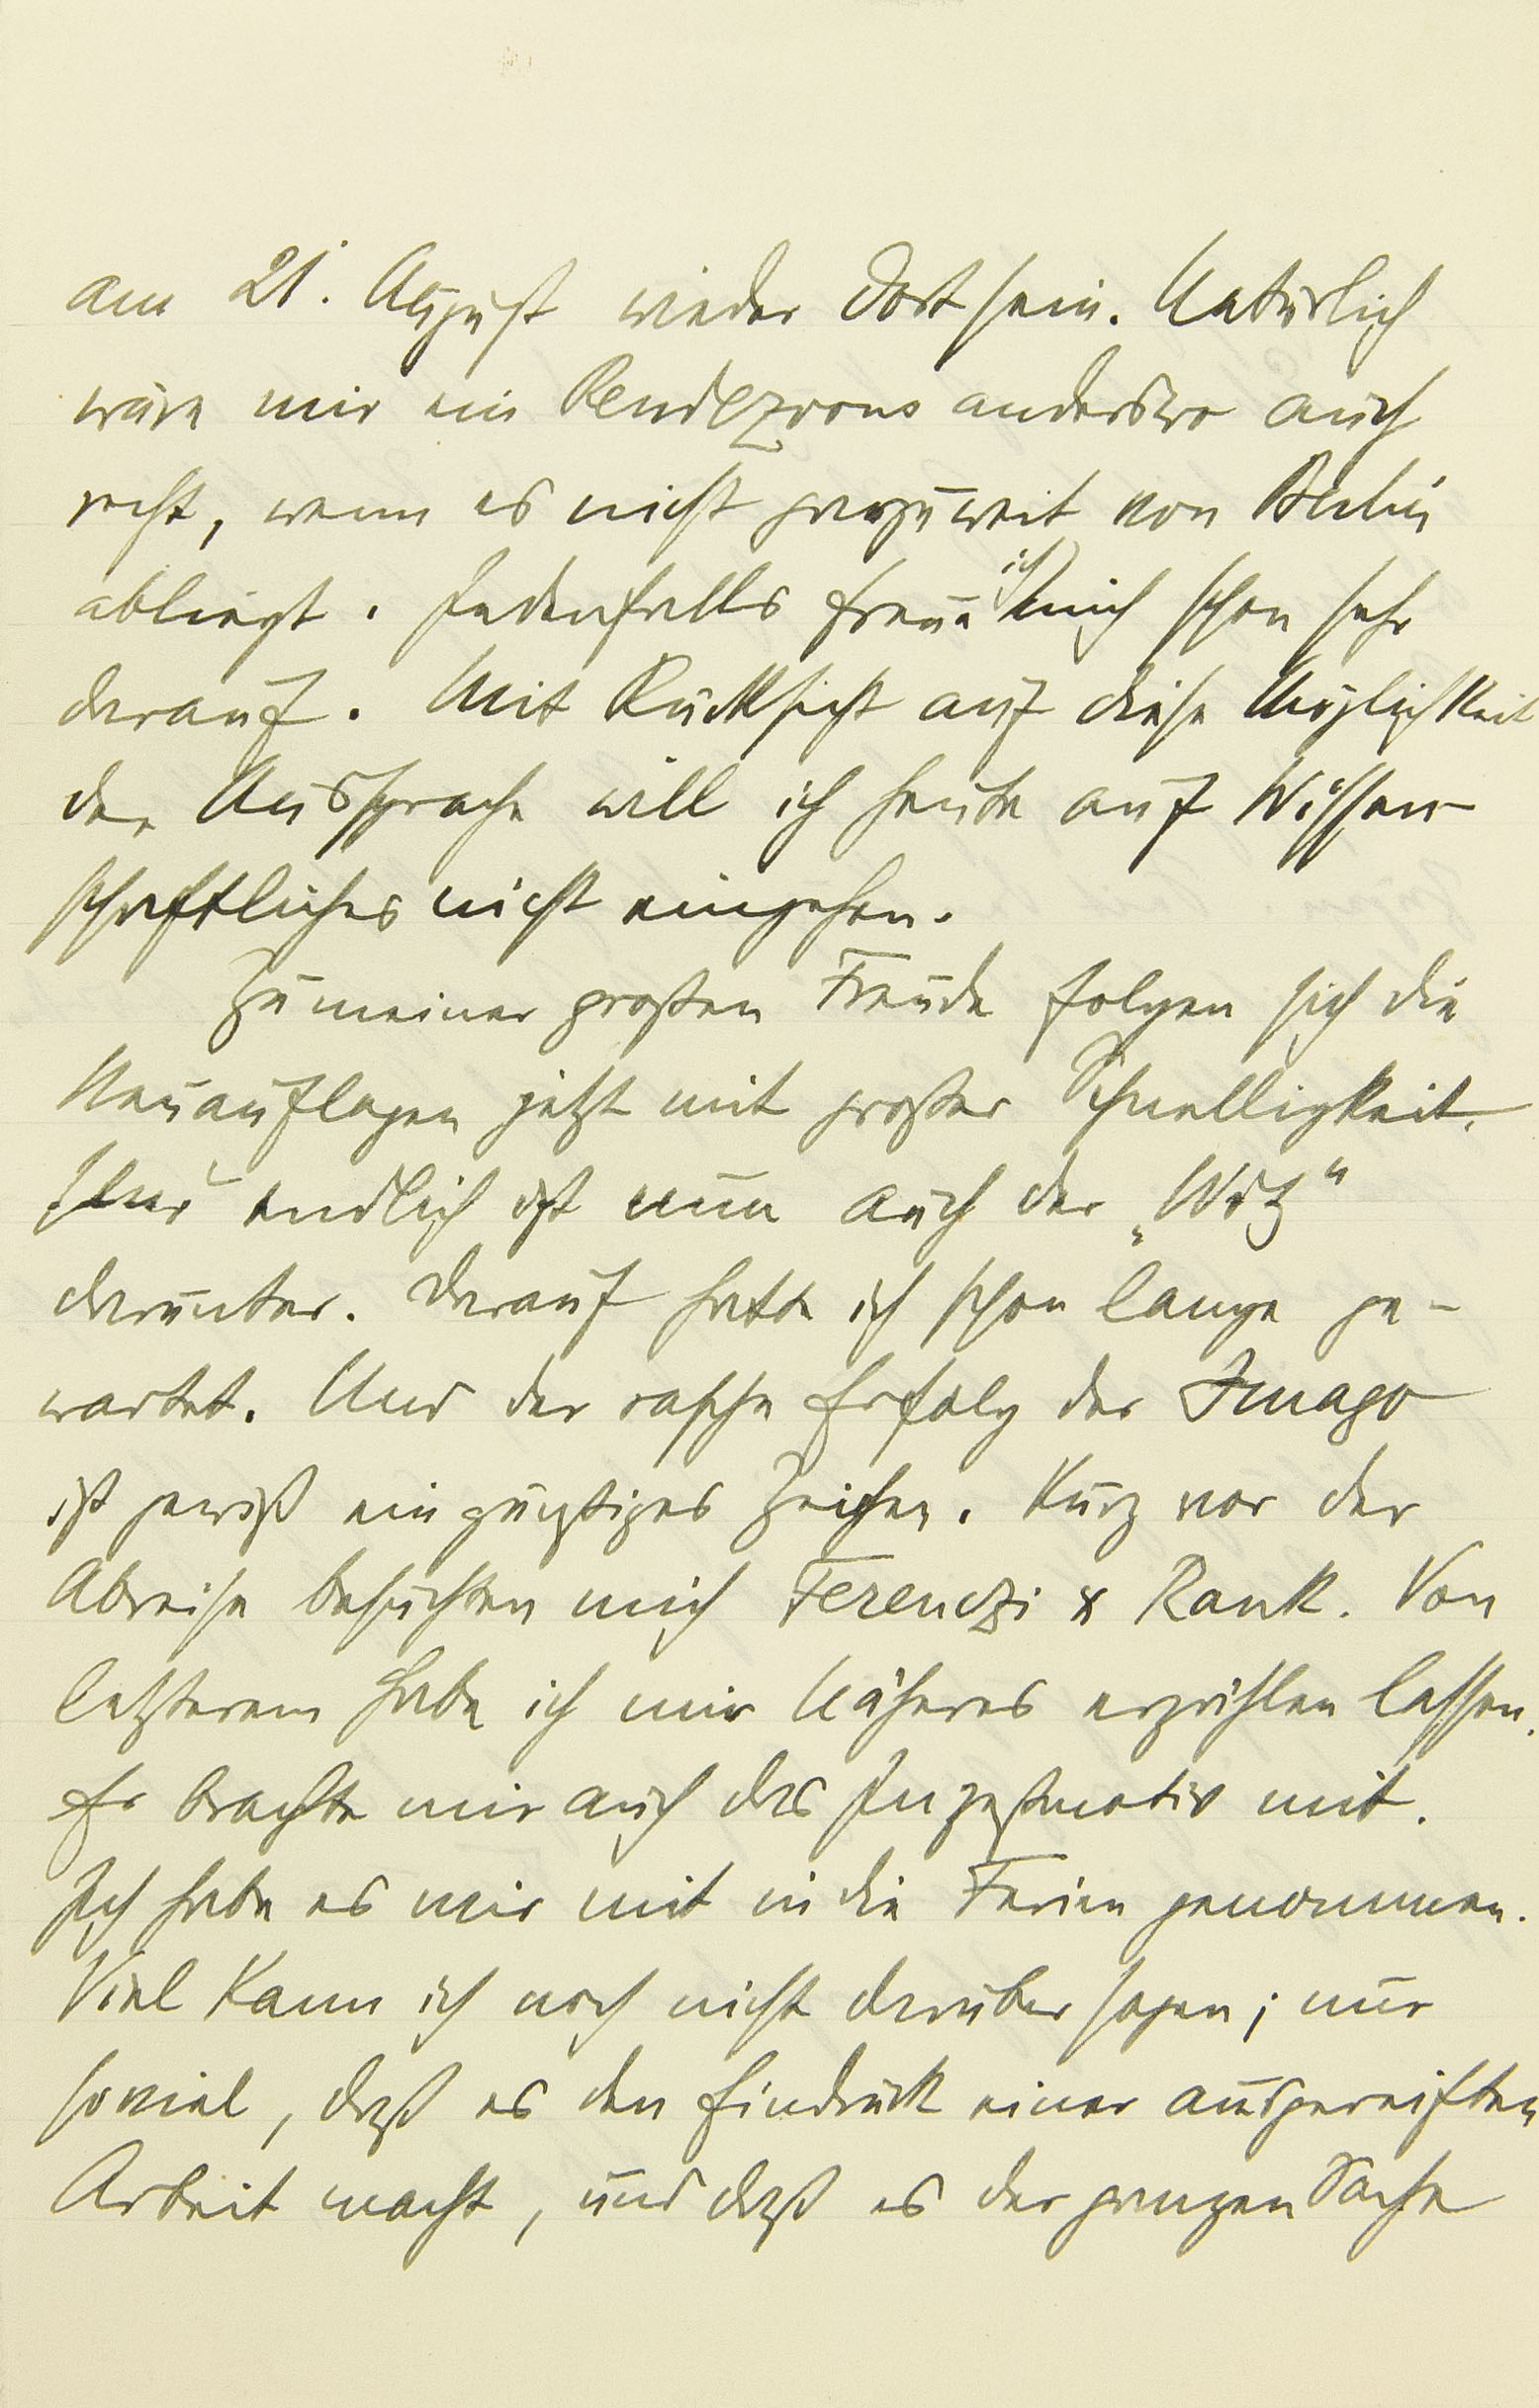 am 21. August wieder dort sein. Natürlich
wäre mir ein Rendezvous anderswo auch
recht, wenn es nicht gar zu weit von Berlin
abliegt. Jedenfalls freue ich mich schon sehr
darauf. Mit Rücksicht auf diese Möglichkeit
der Aussprache will ich heute auf Wissen-
schaftliches nicht eingehen.
Zu meiner großen Freude folgen sich die
Neuauflagen jetzt mit großer Schnelligkeit.
Und endlich ist nun auch der „Witz“
darunter. Darauf hatte ich schon lange ge-
wartet. Und der rasche Erfolg der Imago
ist gewiß ein günstiges Zeichen. Kurz vor der
Abreise besuchten mich Ferenczi & Rank. Von
letzterem habe ich mir Näheres erzählen lassen.
Er brachte mir auch das Inzestmotiv mit.
Ich habe es mir mit in die Ferien genommen.
Viel kann ich noch nicht darüber sagen; nur
soviel, daß es den Eindruck einer ausgereiften
Arbeit macht, und daß es der ganzen Sache